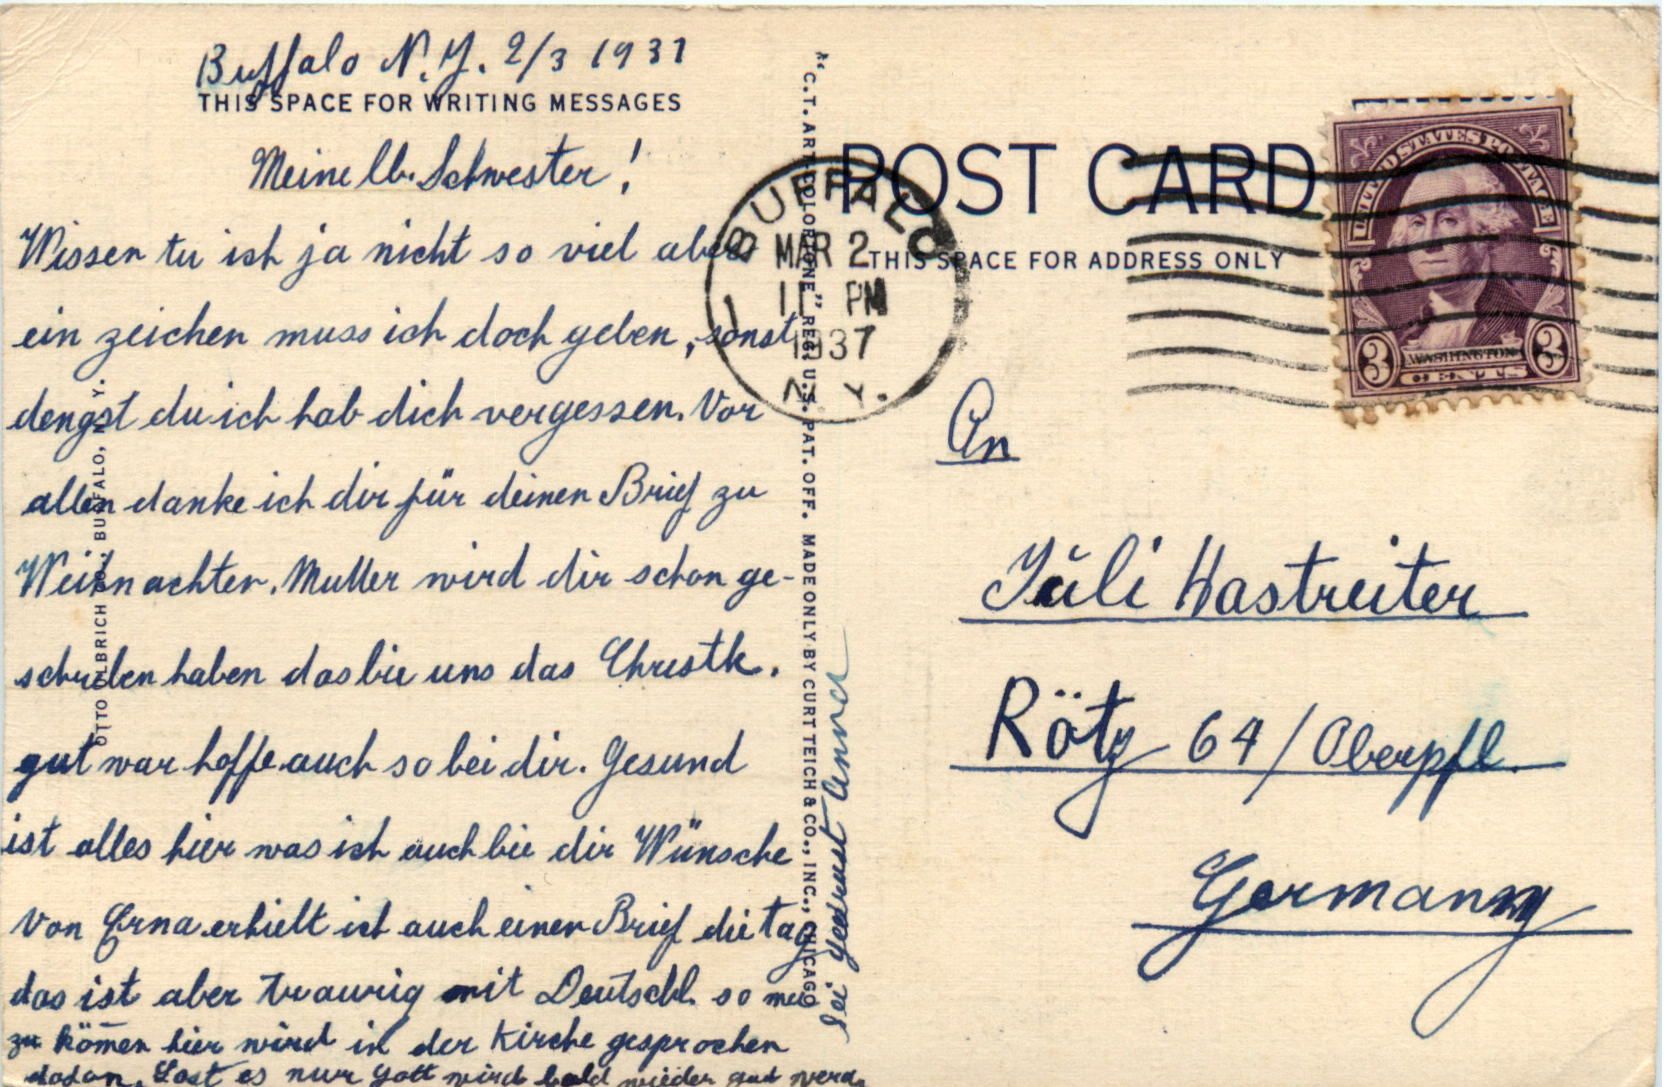 Buffalo N.Y. 2/3 1937
THIS SPACE FOR WRITING MESSAGES
Meine lb. Schwester!
Wissen tu ich ja nicht so viel aber
ein zeichen muss ich doch geben, sonst
dengst du ich hab dich vergessen. Vor
allen danke ich dir für deinen Brief zu
Weihnachten. Mutter wird dir schon ge-
schriben haben das bie uns das Christk.
gut war hoffe auch so bei dir. Gesund
ist alles hier was ich auch bie dir Wünsche
Von Erna erhielt ich auch einen Brief die tag
das ist aber traurig mit Deutschl. so
zu kōmen hier wird in der Kirche gesprochen
dafon. Last es nur Gott wird bald wieder gut werd.
sei gegrüst Anna
OTTO ULBRICH CO., BUFFALO, N. Y.
"C.T. ART-COLORTONE" REG. U.S. PAT. OFF. MADE ONLY BY CURT TEICH & CO., INC., CHICAGO
POST CARD
THIS SPACE FOR ADDRESS ONLY
BUFFALO
MAR 2
11 PM
1937
N. Y.
UNITED STATES POSTAGE
3 WASHINGTON 3
CENTS
An
Juli Hastreiter
Rötz 64/Oberpfl.
Germany